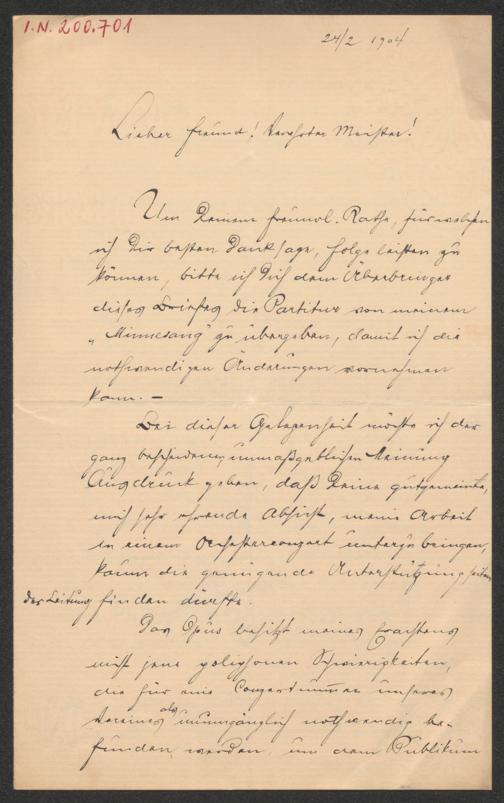 I.N. 200.701
24/2 1904
Lieber Freund! Verehrter Meister!
Um Deinem freundl. Rathe, für welchen
ich Dir besten Dank sage, Folge leisten zu
können, bitte ich Dich dem Überbringer
dieses Briefes die Partitur von meinem
„Minnesang" zu übergeben, damit ich die
nothwendigen Änderungen vornehmen
kann. –
Bei dieser Gelegenheit möchte ich der
ganz bescheidenen, unmaßgeblichen Meinung
Ausdruck geben, daß Deine gutgemeinte,
mich sehr ehrende Absicht, meine Arbeit
in einem Orchesterconzert unterzubringen,
kaum die genügende Unterstützung seitens
der Leitung finden dürfte.
Das Opus besitzt meines Erachtens
nicht jene poliphonen Schwierigkeiten,
die für eine Conzertnummer unseres
Vereines als unumgänglich nothwendig be-
funden werden, um dem Publikum